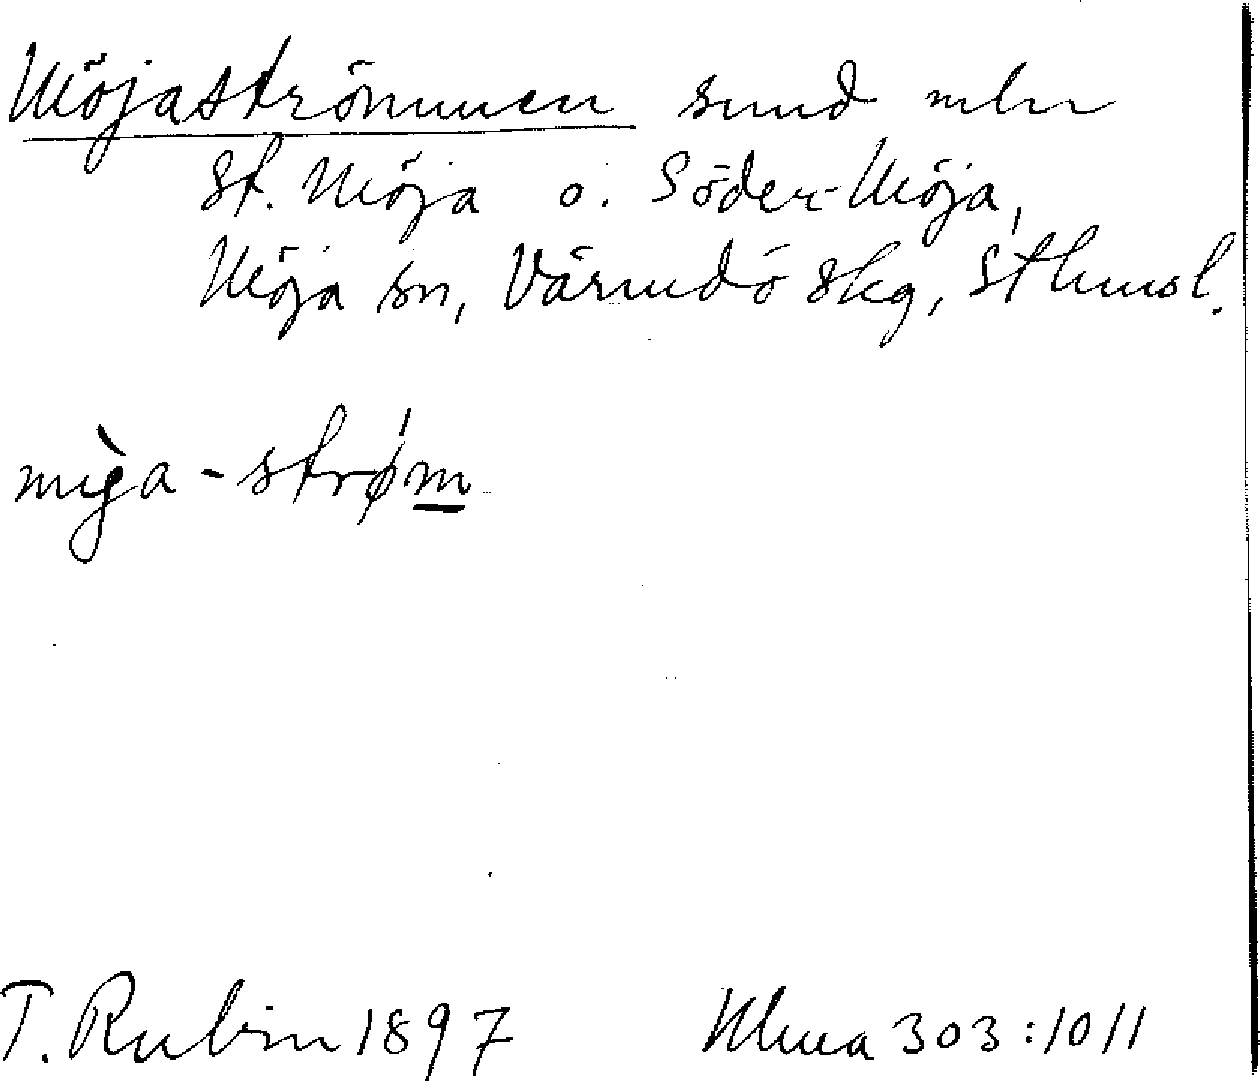 Möjaströmmen sund mln
St. Möja o. Söder-Möja,
Möja sn, Värmdö skg, Sthmsl.
mỳja-strøm
T. Rubin 1897 Ulma 303:1011